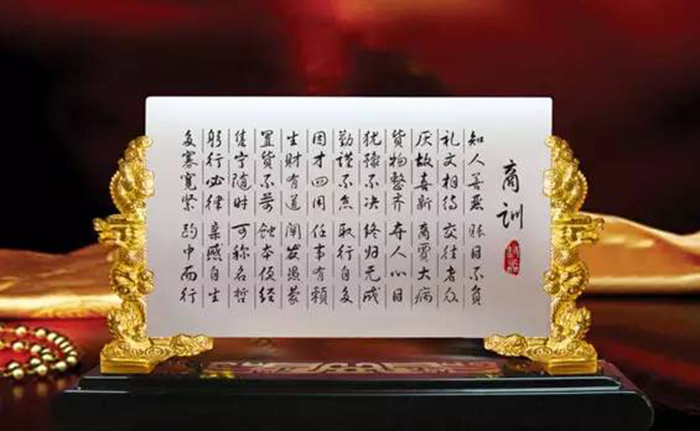 商训
知人善恶 账目不负
礼文相待 交往者众
厌故喜新 商贾大病
货物整齐 夺人心目
犹豫不决 终归无成
勤谨不怠 取行自多
因才四用 任事有赖
生财有道 发愚蒙
置货不苛 蚀本便经
售宁随时 可称名哲
躬行必律 亲感自生
多寡宽紧 中而行